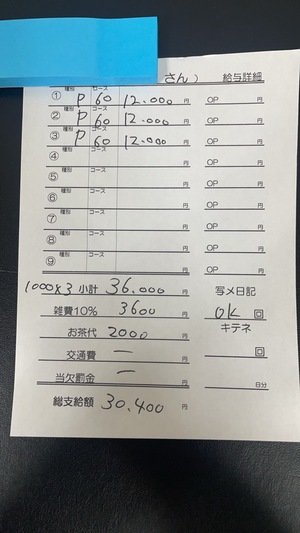 さん） 給与詳細
① 種別 P コース 60 12.000 円 OP 円
② 種別 P コース 60 12.000 円 OP 円
③ 種別 P コース 60 12.000 円 OP 円
④ 種別 コース 円 OP 円
⑤ 種別 コース 円 OP 円
⑥ 種別 コース 円 OP 円
⑦ 種別 コース 円 OP 円
⑧ 種別 コース 円 OP 円
⑨ 種別 コース 円 OP 円
1000×3 小計 36.000 円 写メ日記
雑費10% 3600 円 OK 回
お茶代 2000 円 キテネ
交通費 ー 円 回
当欠罰金 ー 円 日分
総支給額 30.400 円